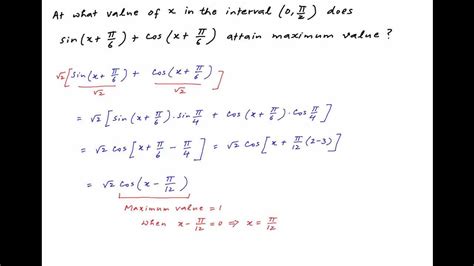 At what value of x in the interval (0, π/2) does
sin(x + π/6) + cos(x + π/6) attain maximum value ?
√2[sin(x + π/6)/√2 + cos(x + π/6)/√2]
= √2[sin(x + π/6).sin π/4 + cos(x + π/6).cos π/4]
= √2 cos[x + π/6 - π/4] = √2 cos[x + π/12 (2-3)]
= √2 cos(x - π/12)
Maximum value = 1
when x - π/12 = 0 ⇒ x = π/12